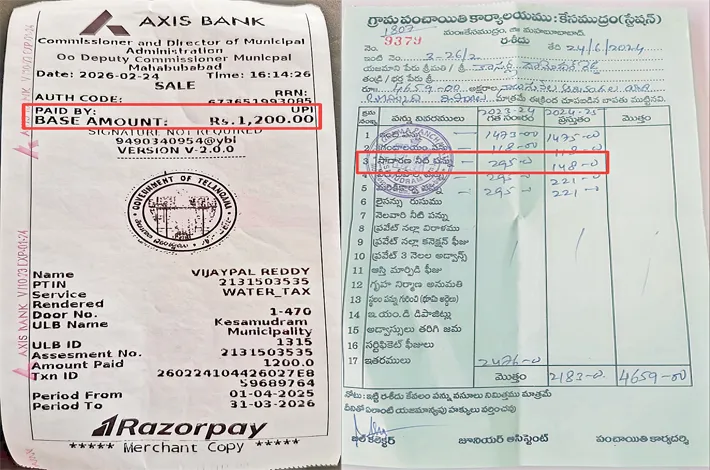 AXIS BANK
Commissioner and Director of Municipal
Administration
Oo Deputy Municpal
Mahabubabad
Date: 2026-02-24 Time: 16:14:26
SALE
RRN:
AUTH CODE: 673651993085
PAID BY: UPI
BASE AMOUNT: Rs.1,200.00
SIGNATURE NOT REQUIRED
9490340954@ybl
VERSION V-2.0.0
GOVERNMENT OF TELANGANA
Name VIJAYPAL REDDY
PTIN 2131503535
Service WATER_TAX
Rendered
Door No. 1-470
ULB Name Kesamudram
Municipality
ULB ID 1315
Assesment No. 2131503535
Amount Paid 1200.0
Txn ID 260224104426027E8
59689764
Period From 01-04-2025
Period To 31-03-2026
Razorpay
***** Merchant Copy *****
గ్రామ పంచాయితి కార్యాలయము : కేసముద్రం(స్టేషన్)
1807
నెం. 9379
రశీదు
తేది 24/6/2024
ఇంటి నెం 3-26/2
రూ 4659-00
క్రమ సంఖ్య పన్ను వివరములు 2023-24 గత సంవత్సరం 2024-25 ప్రస్తుతం మొత్తం
1 ఇంటి పన్ను 1473-00 1475-0
2 118-0 118-0
3 సాధారణ నీటి పన్ను 295-0 148-0
4 295-0 221-0
5 295-0 221-0
6 లైసన్సు రుసుము
7 నెలవారి నీటి పన్ను
8 ప్రైవేట్ నల్లా విరాళము
9 ప్రైవేట్ నల్లా కనెక్షన్ ఫీజు
10 ప్రైవేట్ 3 నెలల అడ్వాన్స్
11 ఆస్తి మార్పిడి ఫీజు
12 గృహ నిర్మాణ అనుమతి
13
14 ఇ.యం.డి డిపాజిట్లు
15 అడ్వాన్సులు తరిగి జమ
16 సర్టిఫికెట్ ఫీజులు
17 ఇతరములు 2476-0
మొత్తం 2183-0 4659-00
నోటు: ఇట్టి రశీదు కేవలం పన్ను వసూలు నిమిత్తము మాత్రమే
దీనితో ఎలాంటి యజమాన్యపు హక్కులు వర్తించవు
బిల్ కలెక్టర్ జూనియర్ అసిస్టెంట్ పంచాయితి కార్యదర్శి